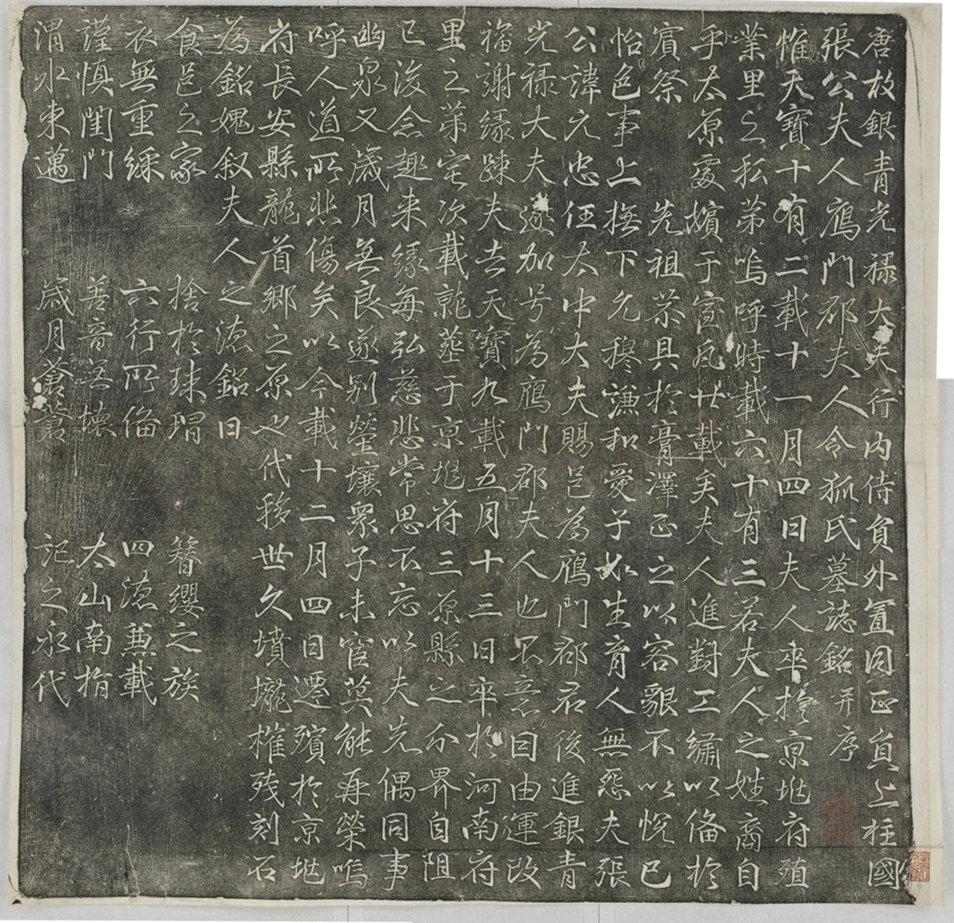 唐故銀青光祿大夫行內侍員外置同正員上柱國
張公夫人鴈門郡夫人令狐氏墓誌銘并序
惟天寶十有二載十一月四日夫人卒於京地府殖
業里之私第嗚呼時載六十有三若夫人之姓裔自
乎太原爰嬪于室凡廿載矣夫人進對工繡以俻於
賓祭 先祖恭具於膏澤正之以容貌不以悅己
怡色事上撫下允穆謙和愛子如生育人無怨夫張
公諱元忠任太中大夫賜邑為鴈門郡君後進銀青
光祿大夫遂加号為鴈門郡夫人也不意日由運改
福謝緣踈夫去天寶九載五月十三日卒於河南府
里之第宅次載就塟于京地府三原縣之分界自阻
已後念趣来緣每弘慈悲常思不忘以夫先偶同事
幽泉又歲月無良遂别塋壤眾子未宦莫能再榮嗚
呼人道所悲傷矣以今載十二月四日遷殯於京地
府長安縣龍首鄉之原也代移世久墳壠摧殘刻石
為銘媿叙夫人之德銘曰
食邑之家 捨於珠瑁 簪纓之族
衣無重綵 六行所俻 四德兼載
謹慎閨門 善音 太山南指
渭水東邁 歲月蒼蒼 記之永代